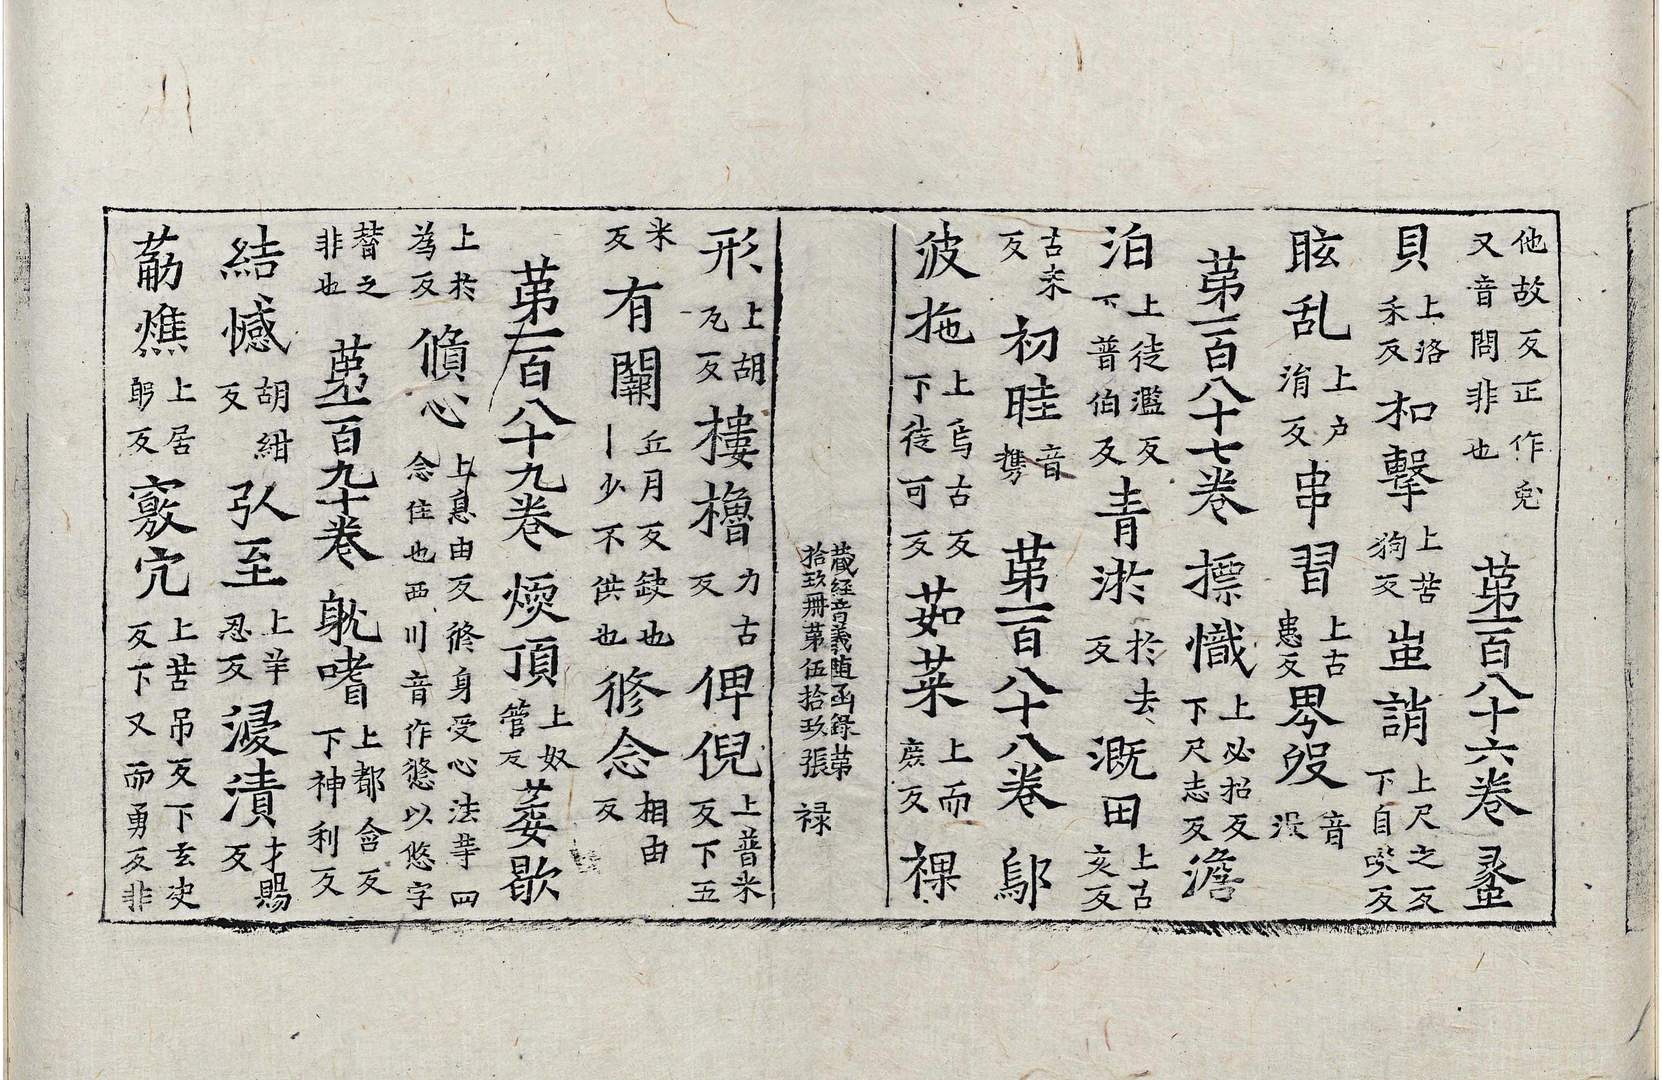 他故反正作兎又音問非也 第一百八十六卷 𧔞
貝 上洛禾反 扣擊 上苦狗反 蚩誚 上尺之反下自𠯗反
眩乱 上户涓反 串習 上古患反 㽝歿 音没
第一百八十七卷 摽幟 上必招反下尺志反 澹
泊 上徒濫反下普伯反 青淤 於去反 溉田 上古亥反
古木反 初畦 音攜 第一百八十八卷 鄔
波拖 上烏古反下徒可反 茹菜 上而庶反 裸
藏經音義隨函錄第拾玖冊第伍拾玖張 禄
形 上胡瓦反 樓櫓 力古反 俾倪 上普米反下五
米反 有闕 丘月反缺也丨少不供也 脩念 相由反
第一百八十九卷 煗頂 上奴管反 萎歇
上於為反 脩心 上息由反脩身受心法䓁四念住也西川音作慫以悠字
替之非也 第一百九十卷 躭嗜 上都含反下神利反
結憾 胡紺反 弘至 上羊忍反 漫漬 才賜反
葪燋 上居郹反 竅穴 上苦吊反下玄決反下又而勇反非